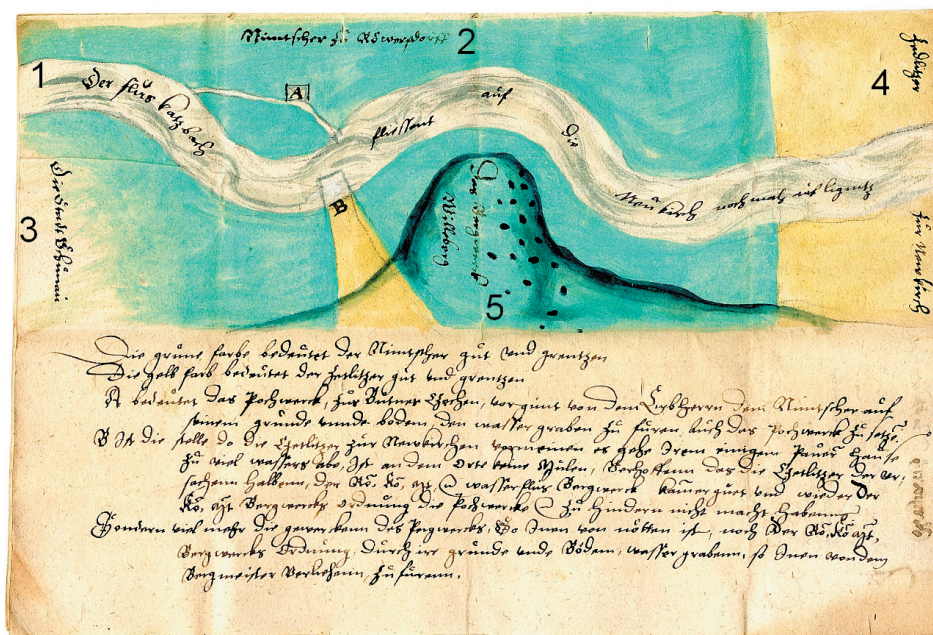 Nimtscher zu Röwersdorff
2
1
4
3
5
Zedlitzer
zur Newkirch
Der flus katzbach
fliessent
auf
die
Neukirch nachmals auf lignitz
A
B
Die Stadt Schönau
Der
Willenberg
Die grune farbe bedeutet der Nimtscher gut vnd grentzen
Die gelb farb bedeutet der Zetlitzer gut vnd grentzen
A bedeutet das Pochwerck, zur Zechen, von dem Erbherrn dem Nimtscher auf
seinem grunde vnnde boden, den wasser graben zu furen, auch das Pochwerck zu setzen
B Ist die stelle do die Zetlitzer zur Newkirchen vormeinen es gehe Irem
zu viel wassers abe, Ist an dem Orte keine Mülen, Verhoffenn das die Zetlitzer der vr,
sachenn halbenn, der Rö. Kö. wasserflus Bergwerck Kamerguet vnd wieder der
Rö. Kö. Bergwercks ordnung die Pochwercke zu hindern nicht macht habenn
Sondern viel mehr die gewercken des Pergwercks, Wo Inen von nötten ist, noch der Rö. Kö.
Bergwercks Ordnung, durch ire grunde vnde Bödem, wasser grabenn, so Inen von dem
Bergmeister Verliehenn, zu furenn.